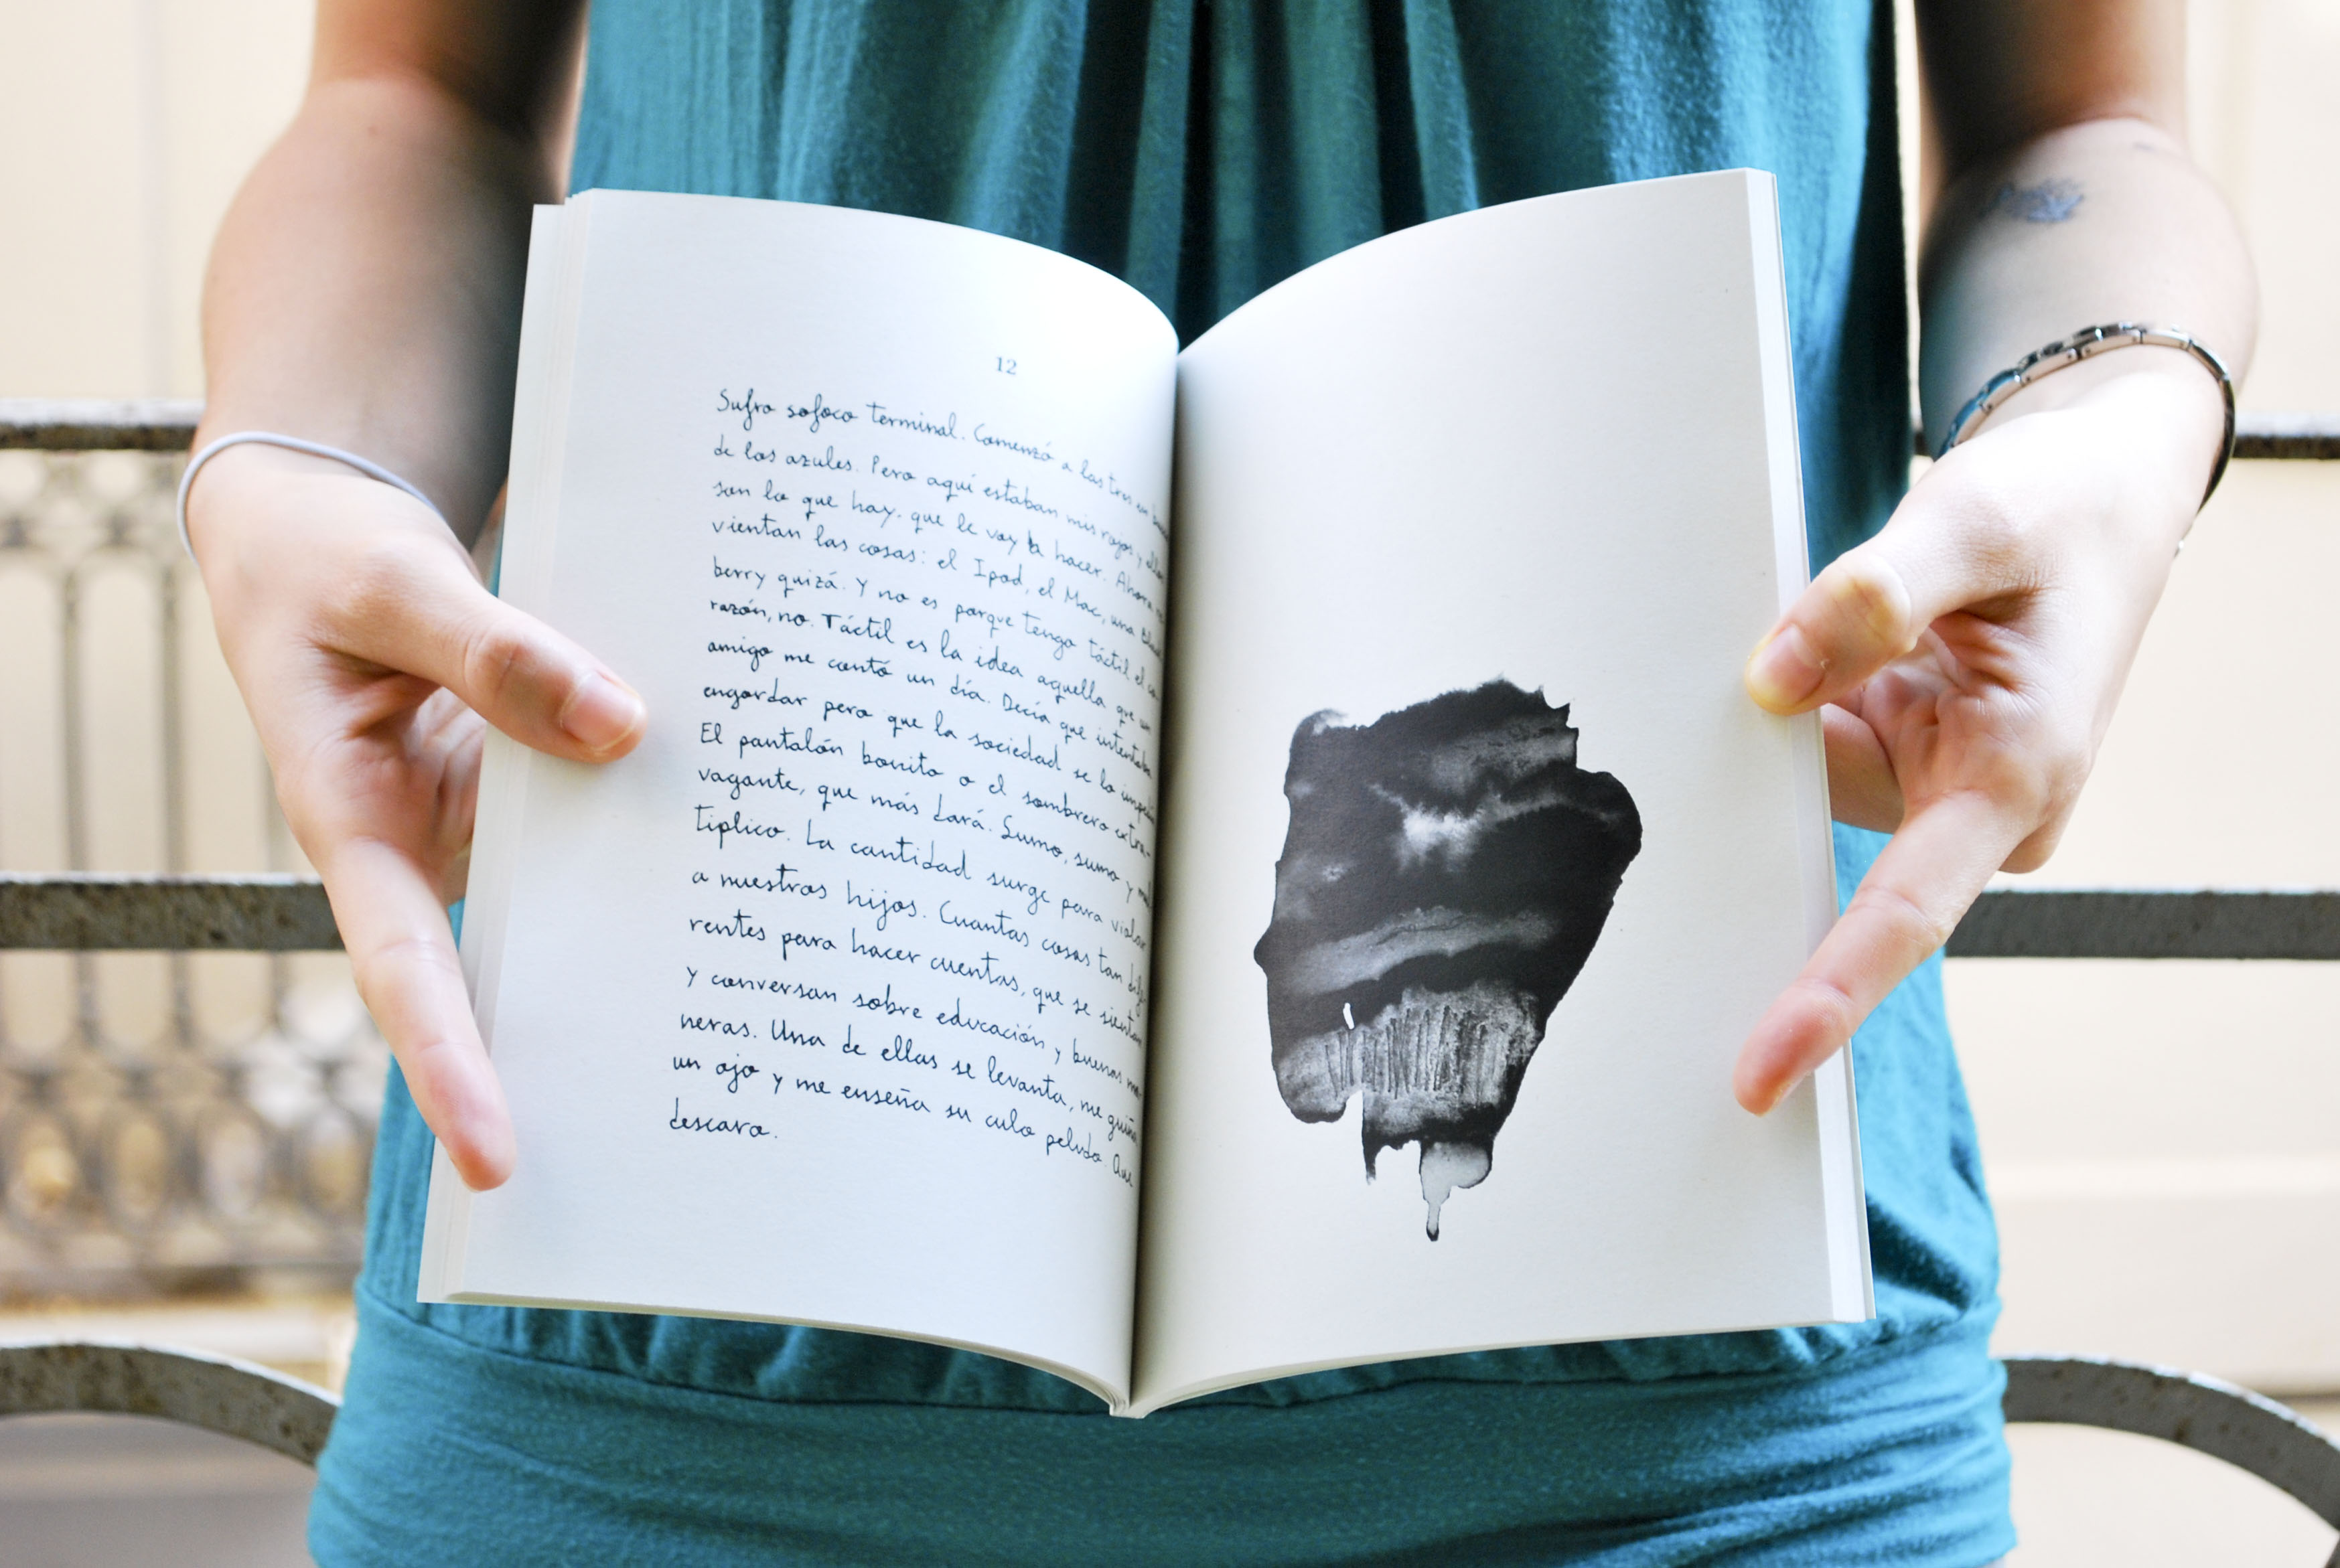 12
Sufro sofoco terminal. Comenzó a las tres en busca
de los azules. Pero aquí estaban mis rojos y ellos
son lo que hay. que le voy a hacer. Ahora re-
vientan las cosas: el Ipod, el Mac, una Black
berry quizá. Y no es porque tengo táctil el co-
razón, no. Táctil es la idea aquella que un
amigo me contó un día. Decía que intentaba
engordar pero que la sociedad se lo impedía
El pantalón bonito o el sombrero extra-
vagante, que más dará. Sumo, sumo y mul
tiplico. La cantidad surge para violar
a nuestros hijos. Cuantas cosas tan dife
rentes para hacer cuentas, que se sientan
y conversan sobre educación y buenas ma-
neras. Una de ellas se levanta, me guiña
un ojo y me enseña su culo peludo. Que
descaro.